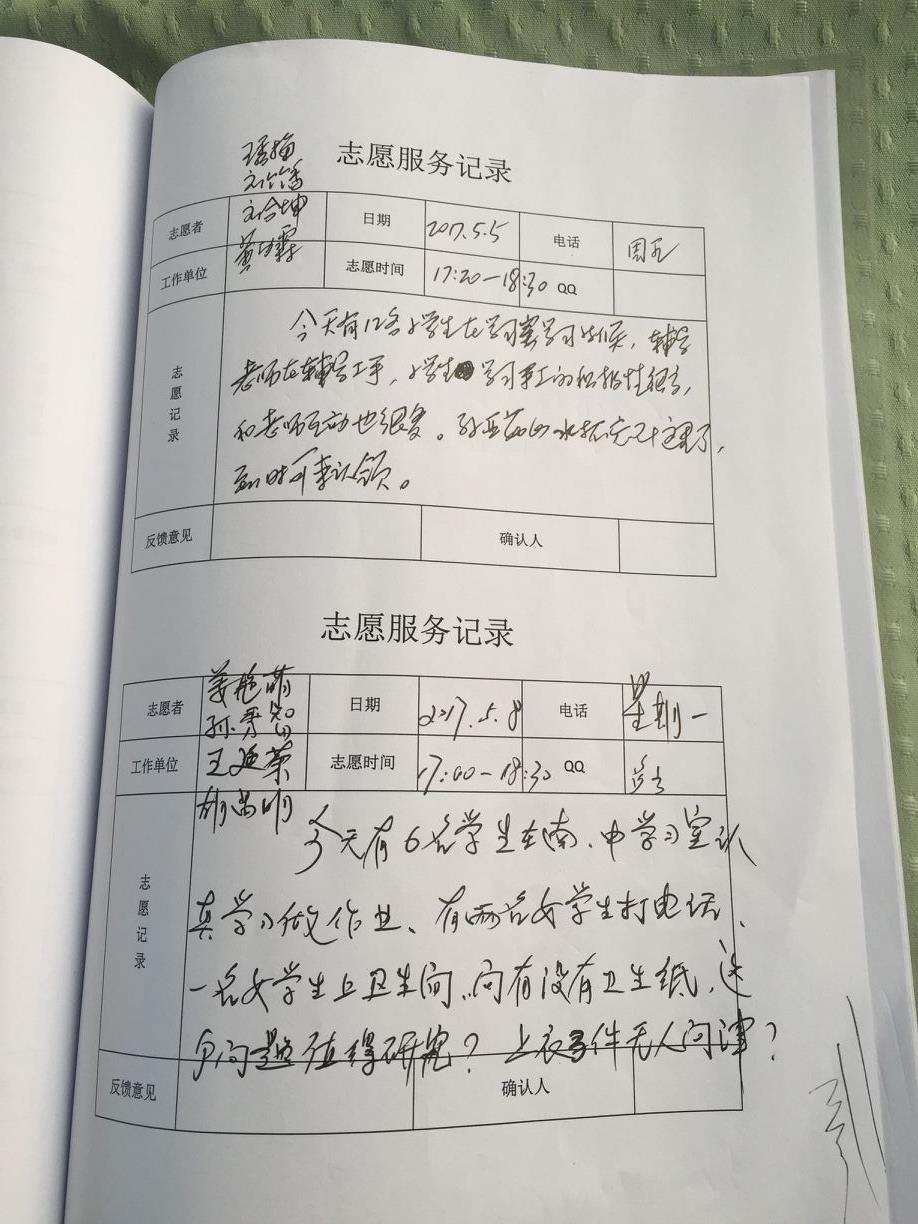 志愿服务记录
志愿者 刘合坤 日期 2017.5.5 电话 周五
工作单位 志愿时间 17:20-18:30 QQ
志愿记录
今天有12名小学生在学习室学习时候，辅导
老师在辅导工事，小学生学习事的积极性很高，
和老师互动也很多。
到时可来认领。
反馈意见 确认人
志愿服务记录
志愿者 姜艳萌 日期 2017.5.8 电话 星期一
孙秀智
工作单位 王延荣 志愿时间 17:00-18:30 QQ
志愿记录
今天有6名学生在南、中学习室认
真学习做作业、有两名女学生打电话、
一名女学生上卫生间、问有没有卫生纸、这
个问题值得研究？上衣3件无人问津？
反馈意见 确认人